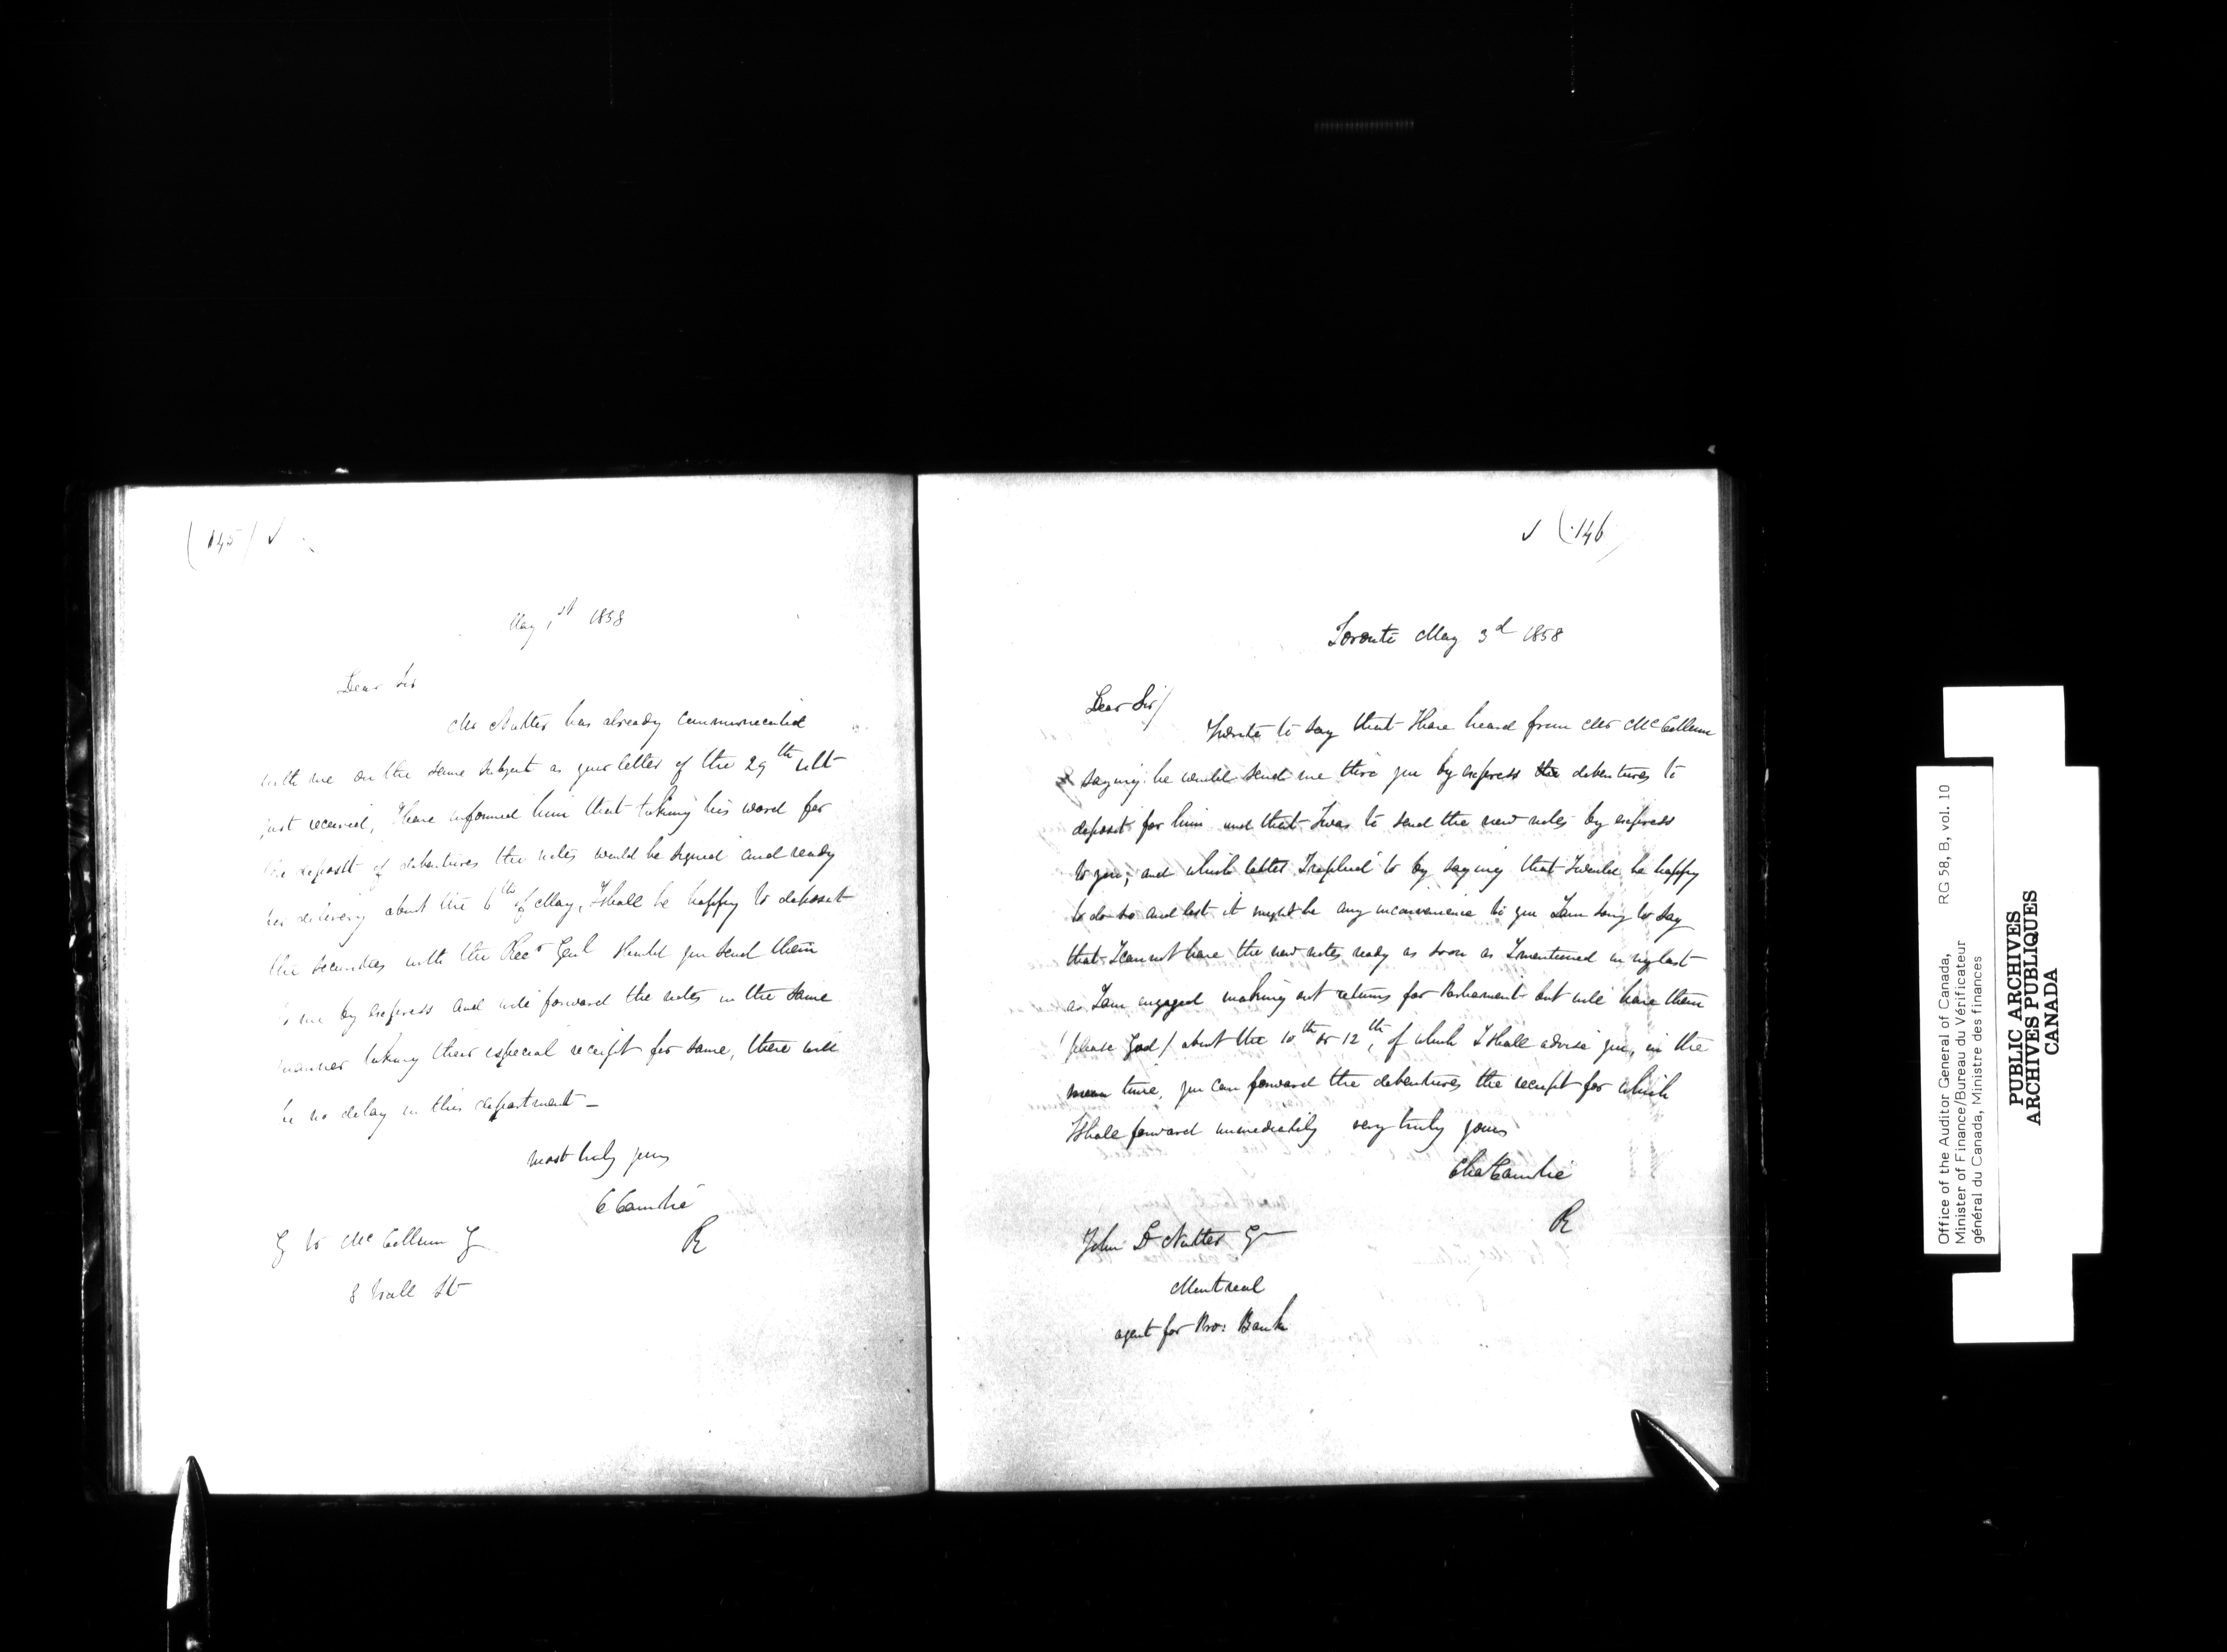 (145) ✓
May 1st 1858
Dear Sir
Mr Nutter has already communicated
with me on the same subject as your letter of the 29th ult
just received, I have informed him that taking his word for
the deposit of debentures the notes would be signed and ready
for delivery about the 6th of May, I shall be happy to deposit
the securities with the Recr Genl should you send them
to me by express and will forward the notes in the same
manner taking their especial receipt for same, there will
be no delay in this department —
most truly yours
C Cambie
R
G W McCollum
8 Wall St
✓ (146)
Toronto May 3d 1858
Dear Sir/
I wrote to say that I have heard from Mr McCollum
saying he would send me thro you by express the debentures to
deposit for him and that I was to send the new notes by express
to you, and which letter I replied to by saying that I would be happy
to do so and lest it might be any inconvenience to you I am sorry to say
that I cannot have the new notes ready as soon as I mentioned in my last
as I am engaged making out returns for Parliament but will have them
(please God) about the 10th or 12th, of which I shall advise you, in the
mean time, you can forward the debentures the receipt for which
I shall forward immediately very truly yours
Chas Cambie
R
John D Nutter
Montreal
agent for Pro: Bank
Office of the Auditor General of Canada, RG 58, B, vol. 10
Minister of Finance/Bureau du Vérificateur
général du Canada, Ministre des finances
PUBLIC ARCHIVES
ARCHIVES PUBLIQUES
CANADA